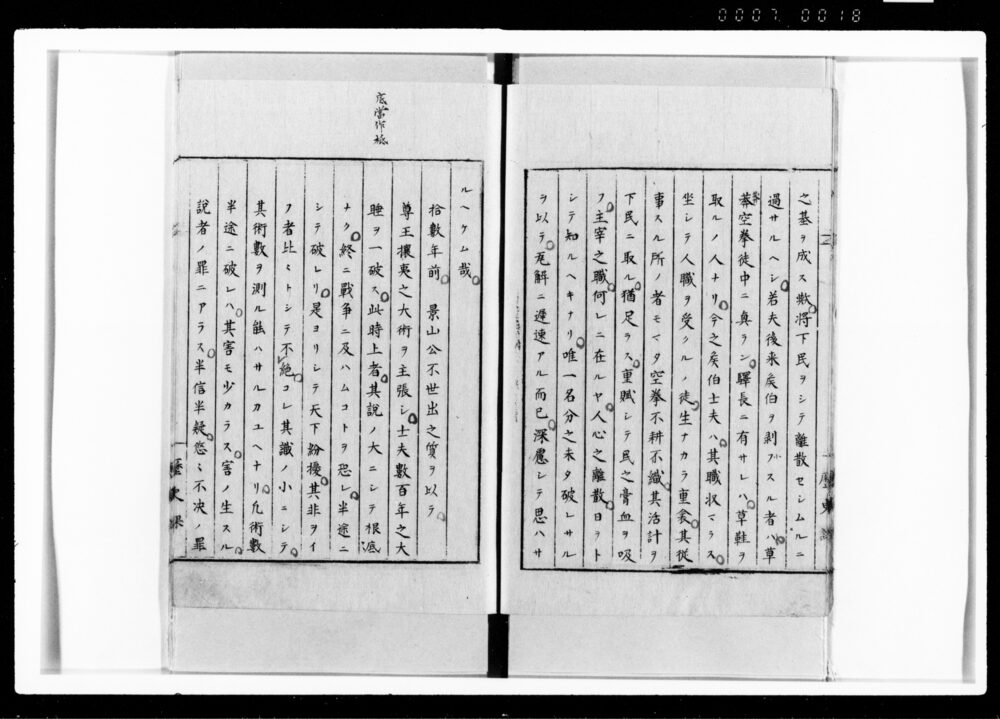 0007 0018
之基ヲ成ス歟将下民ヲシテ離散セシムルニ
過サルヘシ若夫後来矦伯ヲ剥ヲスル者ハ草
莾空拳徒中ニ真ラン驛長ニ有サレハ草鞋ヲ
取ルノ人ナリ今之矦伯士夫ハ其職収マラス
坐シテ人職ヲ受クルノ徒生ナカラ重衾其従
事スル所ノ者モマタ空拳不耕不織其活計ヲ
下民ニ取ル猶足ラス重賦シテ民之膏血ヲ吸
フ主宰之職何レニ在ルヤ人心之離散日ヲト
シテ知ルヘキナリ唯一名分之未タ破レサル
ヲ以テ瓦解ニ遅速アル而已深慮シテ思ハサ
歴史課
底當作柢
ルヘケム哉
拾數年前　景山公不世出之質ヲ以テ
尊王攘夷之大術ヲ主張シ士夫數百年之大
睡ヲ一破ス此時上者其説ノ大ニシテ根底
ナク終ニ戰争ニ及ハムコトヲ恐レ半途ニ
シテ破レリ是ヨリシテ天下紛擾其非ヲイ
フ者比〻トシテ不絶コレ其識ノ小ニシテ
其術數ヲ測ル能ハサルカユヘナリ凢術數
半途ニ破レハ其害モ少カラス害ノ生スル
説者ノ罪ニアラス半信半疑悠〻不决ノ罪
歴史課